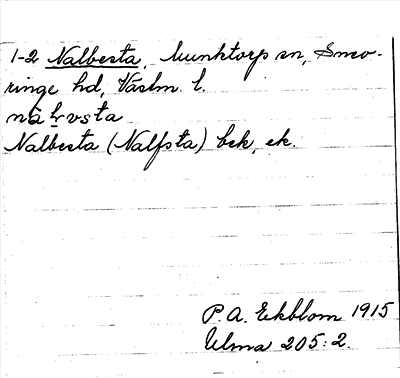 1-2 Nalbesta, Munktorps sn, Snevringe hd, Västm. l.
nalvsta
Nalbesta (Nalfsta) bek, ek.
P. A. Ekblom 1915
Ulma 205:2.